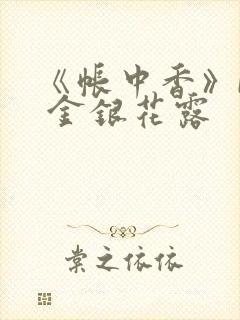 《帳中香》
金銀花露
棠之依依